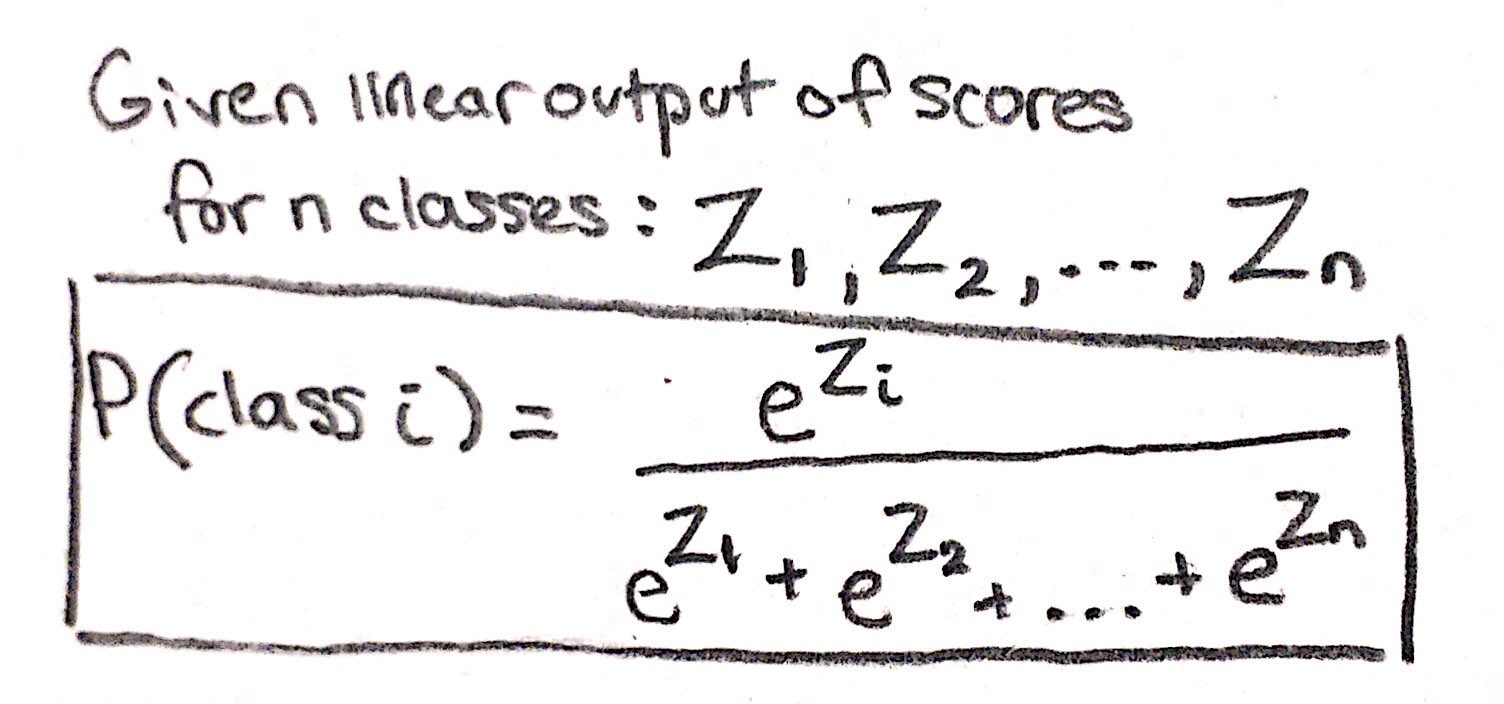 Given linear output of scores
for n classes: Z₁, Z₂, ..., Zₙ
P(class i) = e^{Z_i} / (e^{Z_1} + e^{Z_2} + ... + e^{Z_n})